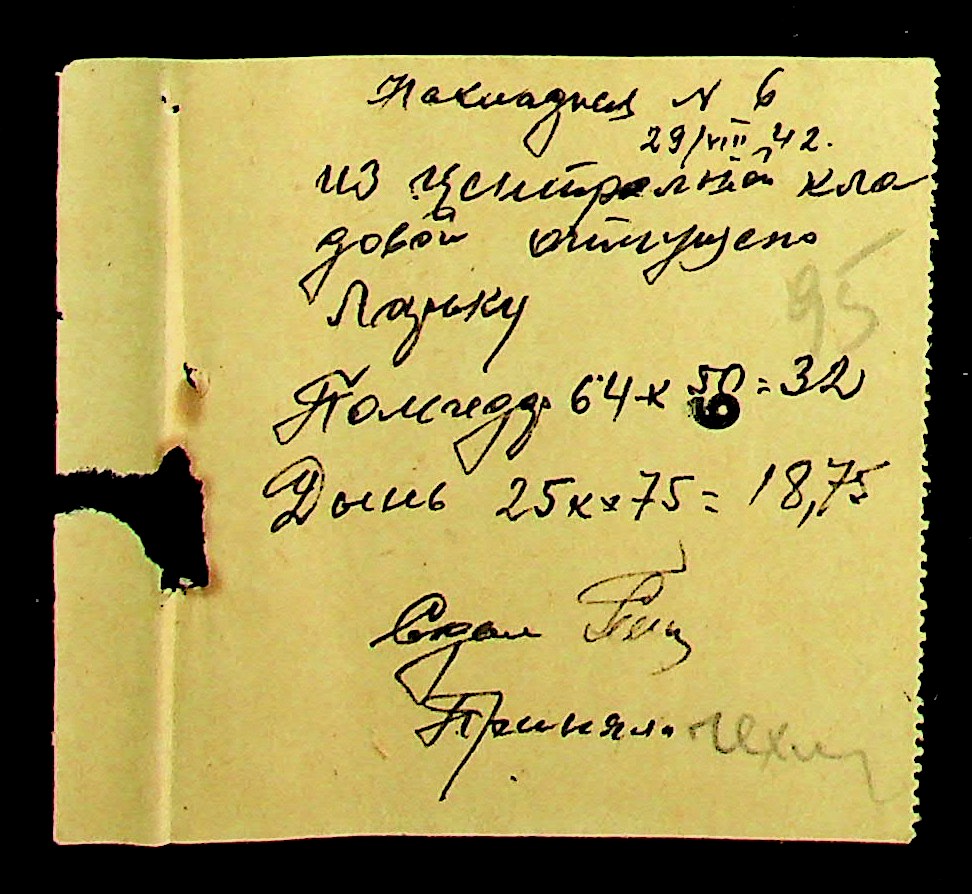 Накладная N 6
29/VIII 42.
из центральной кла
довой отпущено
Ларьку
Помидор 64 к 50 = 32
95
Дынь 25 к х 75 = 18,75
Сдал
Принял